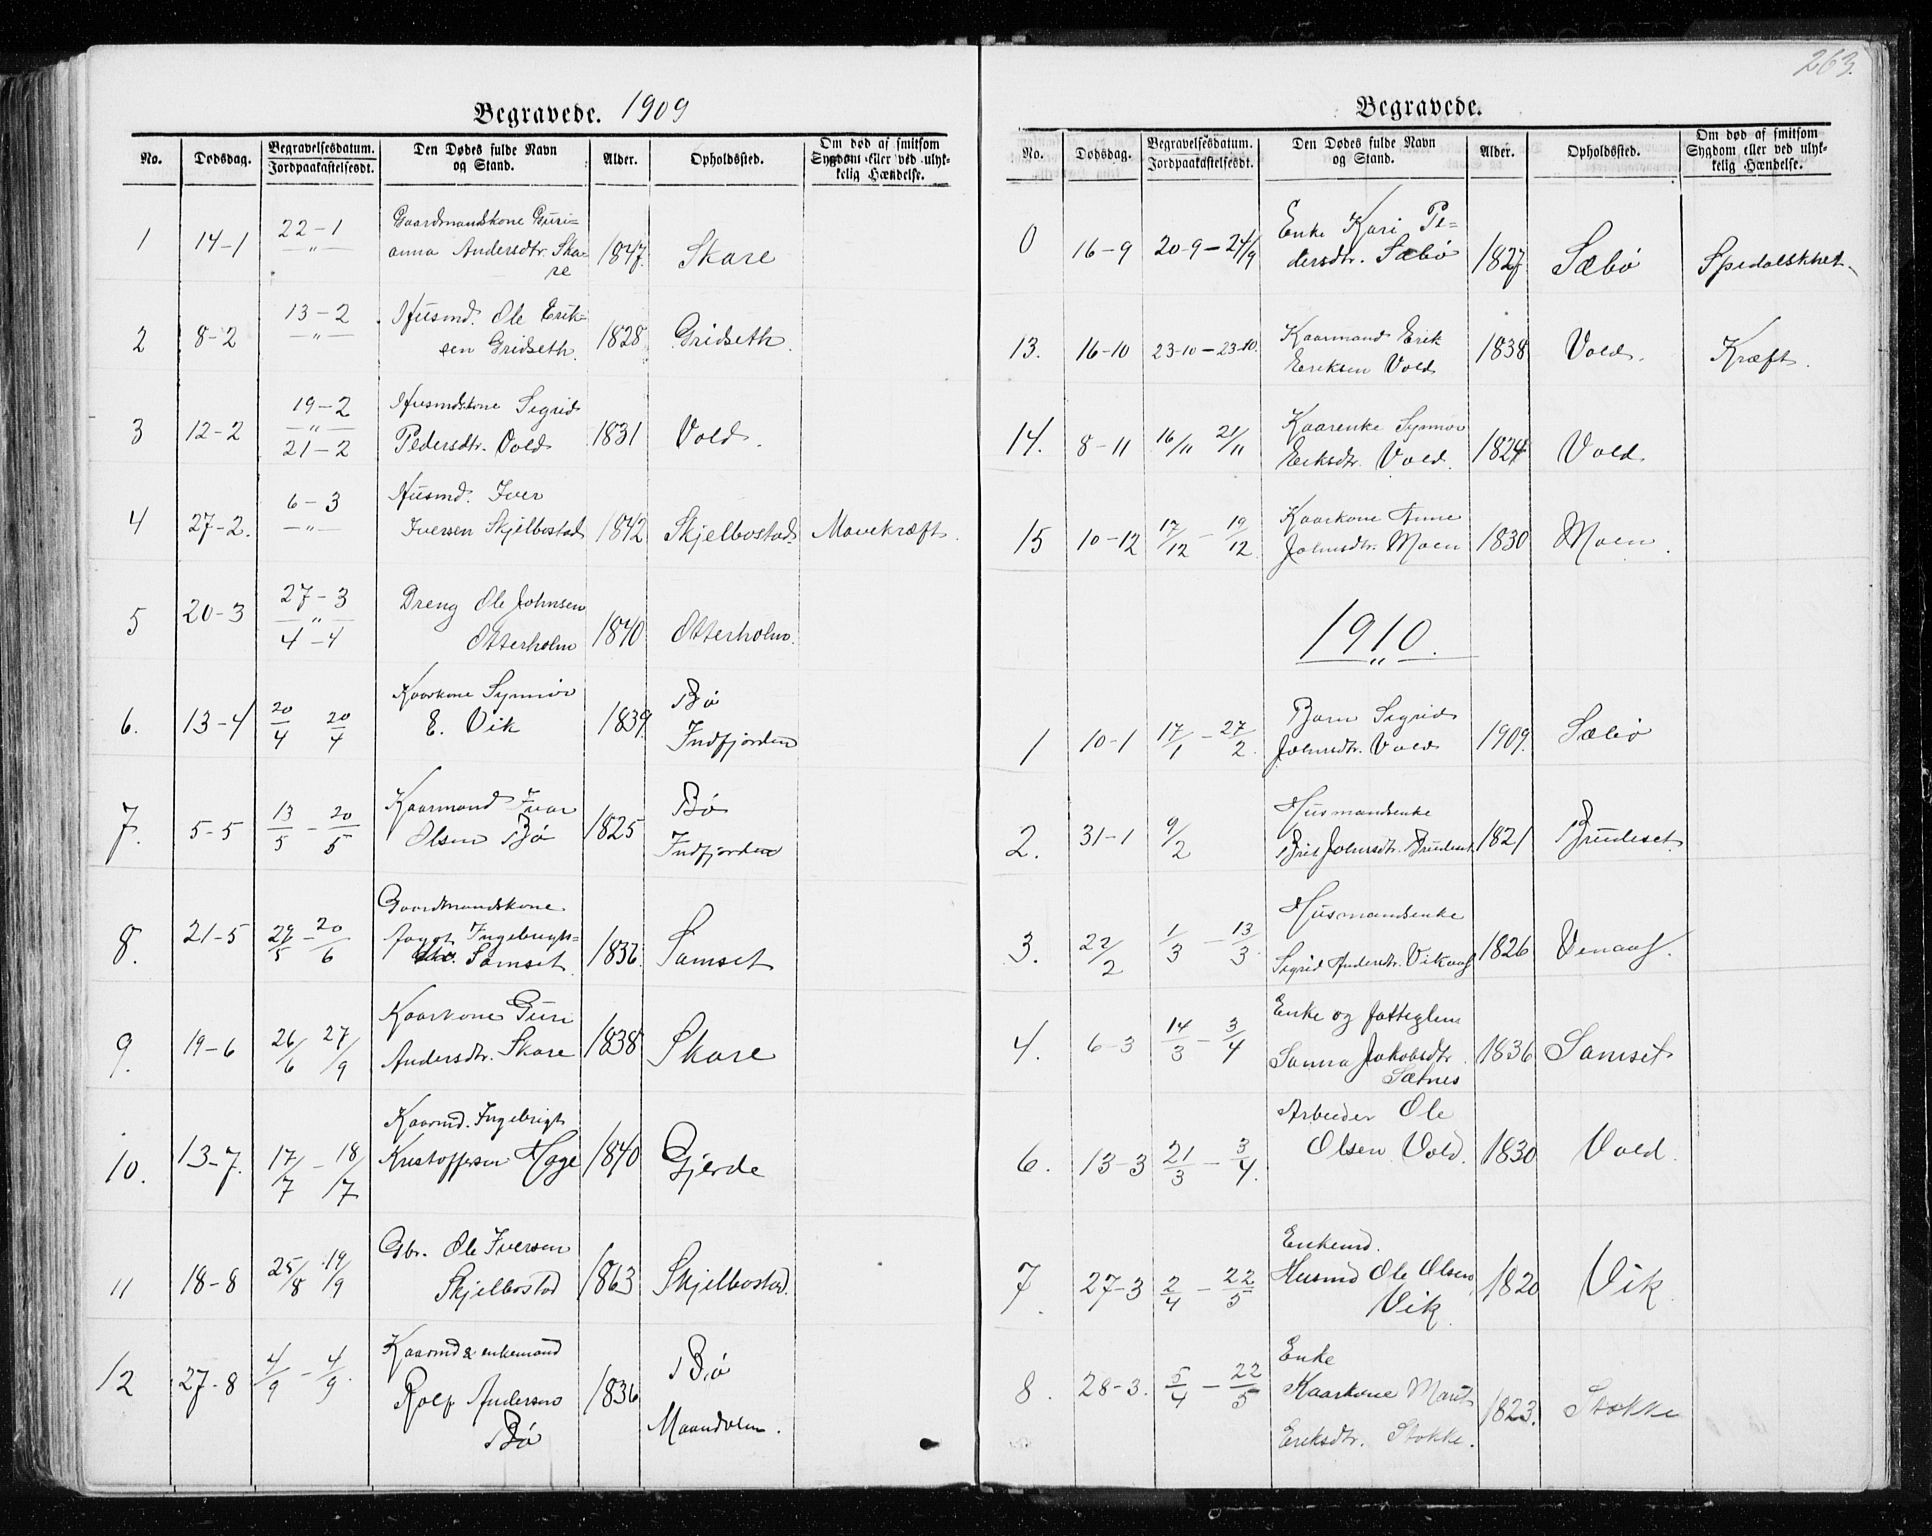 263.
Begravede. 1909
No. Dødsdag. Begravelsesdatum. Jordpaakastelsesdt. Den Dødes fulde Navn og Stand. Alder. Opholdssted. Om død af smitsom Sygdom eller ved ulykkelig Hændelse.
1 14-1 22-1 -"- Gaardmandskone Guri=
anna Andersdtr. Ska=
re 1847. Skare
2 8-2 13-2 -"- Husmd. Ole Erik=
sen Gridseth. 1828 Gridseth.
3 12-2 19-2 -"- 21-2 Husmdskone Sigrid
Pedersdtr. Vold 1831 Vold.
4 27-2. 6-3 -"- Husmd. Iver
Iversen Skjelbostad 1842 Skjelbostad. Mavekræft.
5 20-3 27-3 -"- 4-4 Dreng Ole Johnsen
Otterholm 1840 Otterholm.
6. 13-4 20/4 20/4 Kaarkone Synnøv
E. Vik 1839. Bø
Indfjorden
7. 5-5 13/5 - 20/5 Kaarmand Ivar
Olsen Bø 1825 Bø
Indfjorden
8. 21-5 29/5 - 20/6 Gaardmandskone
Ingebrigts=
Samset. 1836. Samset
9. 19-6 26/6 27/9 Kaarkone Guri
Andersdtr. Skare 1838 Skare
10. 13-7. 17/7 - 18/7 Kaarmd. Ingebrigt
Kristoffersen Hage 1840 Gjerde
11 18-8 25/8 19/9 Gbr. Ole Iversen
Skjelbostad 1863 Skjelbostad.
12 27-8 4/9 - 4/9. Kaarmd & enkemand
Rolf Andersen
Bø 1836 Bø
Maandalen.
Begravede.
No. Dødsdag. Begravelsesdatum. Jordpaakastelsesdt. Den Dødes fulde Navn og Stand. Alder. Opholdssted. Om død af smitsom Sygdom eller ved ulykkelig Hændelse.
0 16-9 20-9 - 24/9 Enke Kari Pe=
dersdtr. Sæbø 1827 Sæbø Spedalskhet.
13. 16-10 23-10 - 23-10. Kaarmand Erik
Eriksen Vold 1838 Vold. Kræft.
14. 8-11 16/11 21/11 Kaarenke Synnøv
Eriksdtr. Vold. 1824 Vold
15 10-12 17/12 - 19/12 Kaarkone Anne
Johnsdtr. Moen 1830 Moen.
1910.
1 10-1 17/1 - 27/2 Barn Sigrid
Johnsdtr. Vold 1909. Sæbø
2. 31-1 9/2 Husmandsenke
Brit Johnsdtr. Brudeset 1821 Brudeset.
3. 22/2 1/3 - 13/3 Husmandsenke
Sigrid Andersdtr. Vikaas 1826 Venaas.
4. 6-3 14/3 - 3/4 Enke og fattiglem
Sanna Jakobsdtr.
Sætnes 1836 Samset
6. 13-3 21/3 - 3/4. Arbeider Ole
Olsen Vold. 1830 Vold.
7. 27-3 2/4 - 22/5 Enkemd.
Husmd Ole Olsen
Vik. 1820 Vik
8. 28-3. 5/4 - 22/5 Enke
Kaarkone Marit
Eriksdtr. Stokke. 1823. Stokke